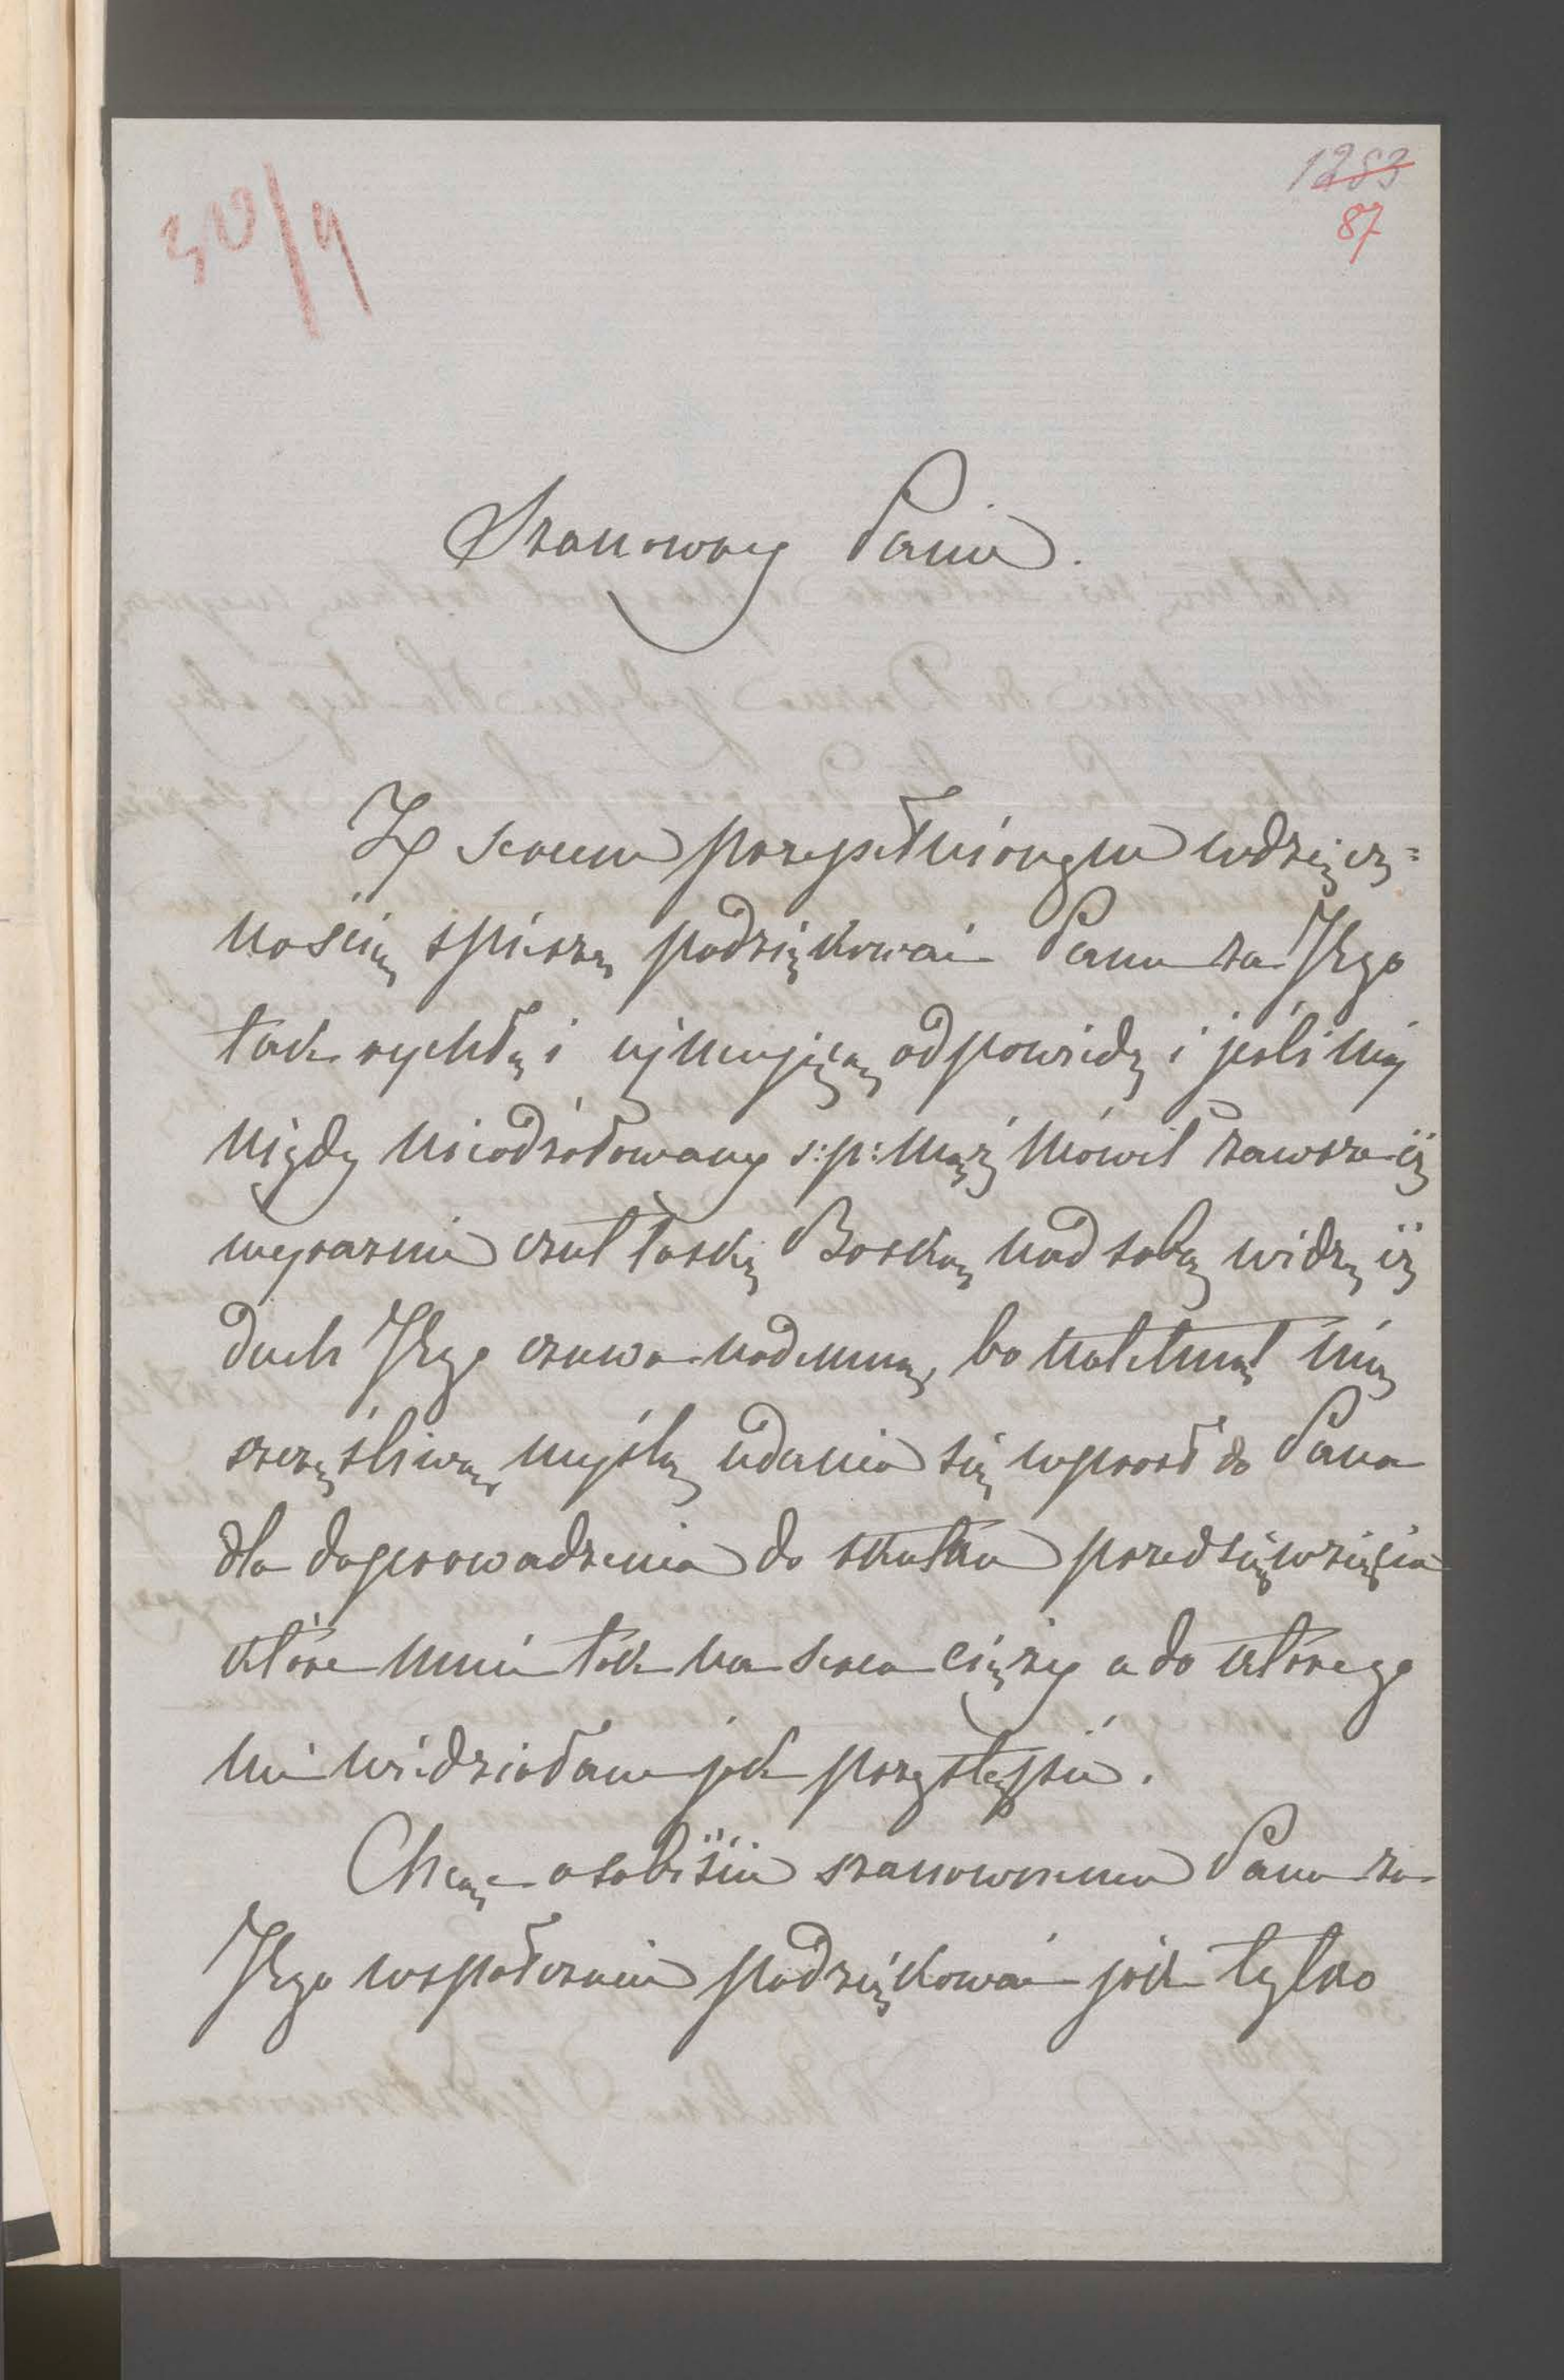 30/9
1283
87
Szanowny Panie.
Z sercem przepełnionym wdzięcz=
nością spieszę podziękować Panu za Jego
tak rychłą i ujmującą odpowiedź i jeśli mój
nigdy nieodżałowany ś:p: mąż mówił zawsze iż
wyraźnie czuł łaskę Boską nad sobą widzę iż
duch Jego czuwa nademną, bo natchnął mię
szczęśliwą myślą udania się wprost do Pana
dla doprowadzenia do skutku przedsięwzięcia
które mnie tak na sercu cięży a do którego
nie widziałam jak przystąpić.
Chcąc osobiście szanownemu Panu za
Jego współczucie podziękować jak tylko